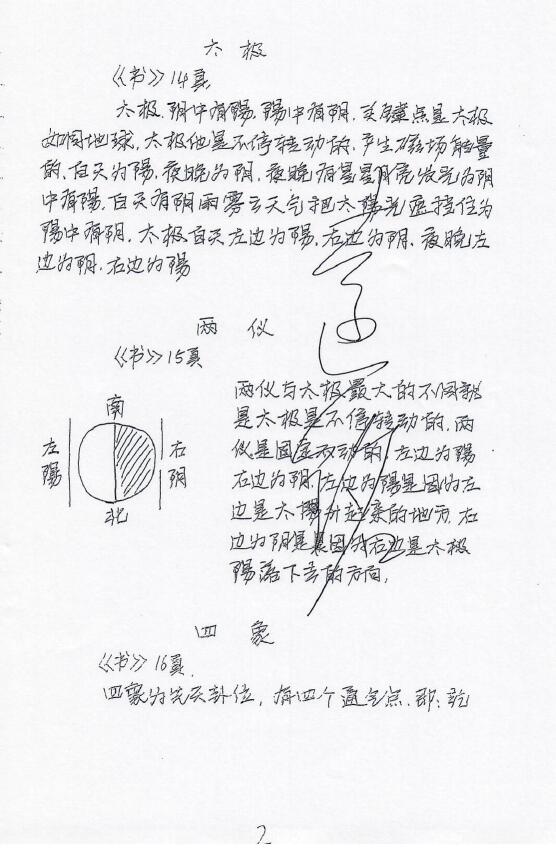 太极
《书》14頁.
太极.阴中有陽.陽中有阴.关键点是太极
如同地球.太极他是不停转动的.产生磁场能量
的.白天为陽.夜晚为阴.夜晚有星星月亮发光为阴
中有陽.白天有阴雨雾云天气把太陽光遮挡住为
陽中有阴.太极白天左边为陽.右边为阴.夜晚左
边为阴.右边为陽
两仪
《书》15頁
南
左陽
右阴
北
两仪与太极最大的不同就
是太极是不停转动的.两
仪是固定不动的.左边为陽
右边为阴.左边为陽是因为左
边是太陽升起来的地方.右
边为阴是因为右边是太极
陽落下去的方向.
四象
《书》16頁.
四象为先天卦位，有四个通气点.即:乾
2